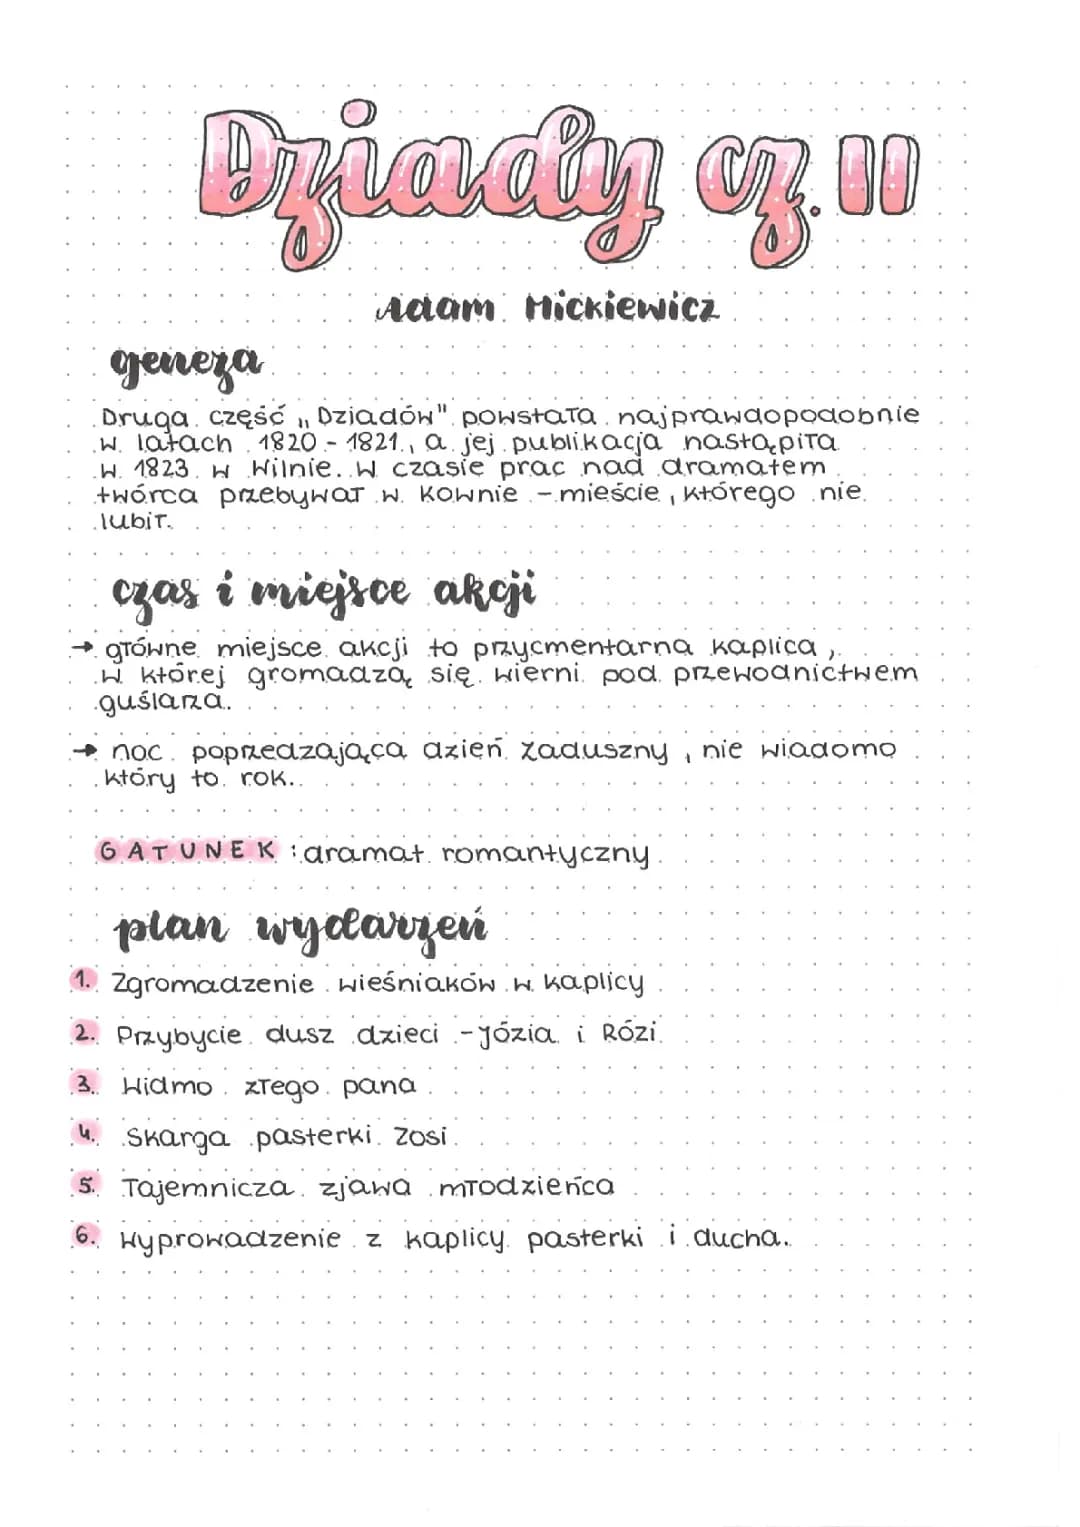 Dziady cz. II
Adam Mickiewicz
geneza
Druga część „Dziadów" powstała najprawdopodobnie
w latach 1820 - 1821, a jej publikacja nastąpiła
w 1823 w Wilnie. W czasie prac nad dramatem
twórca przebywał w Kownie - mieście, którego nie
lubił.
czas i miejsce akcji
→ główne miejsce akcji to przycmentarna kaplica,
w której gromadzą się wierni pod przewodnictwem
guślarza.
→ noc poprzedzająca dzień zaduszny, nie wiadomo
który to rok.
GATUNEK: dramat romantyczny
plan wydarzeń
1. Zgromadzenie wieśniaków w kaplicy
2. Przybycie dusz dzieci - Józia i Rózi
3. Widmo złego pana
4. Skarga pasterki Zosi
5. Tajemnicza zjawa młodzieńca
6. Wyprowadzenie z kaplicy pasterki i ducha.